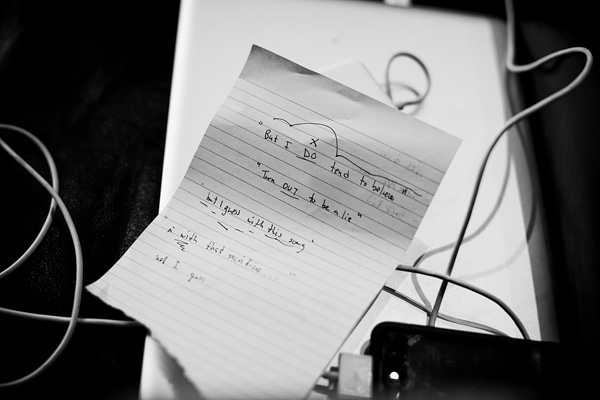 "But I DO tend to believe"
X
"Turn OUT to be a lie"
"but I guess with this song"
with that sacrifice
but I